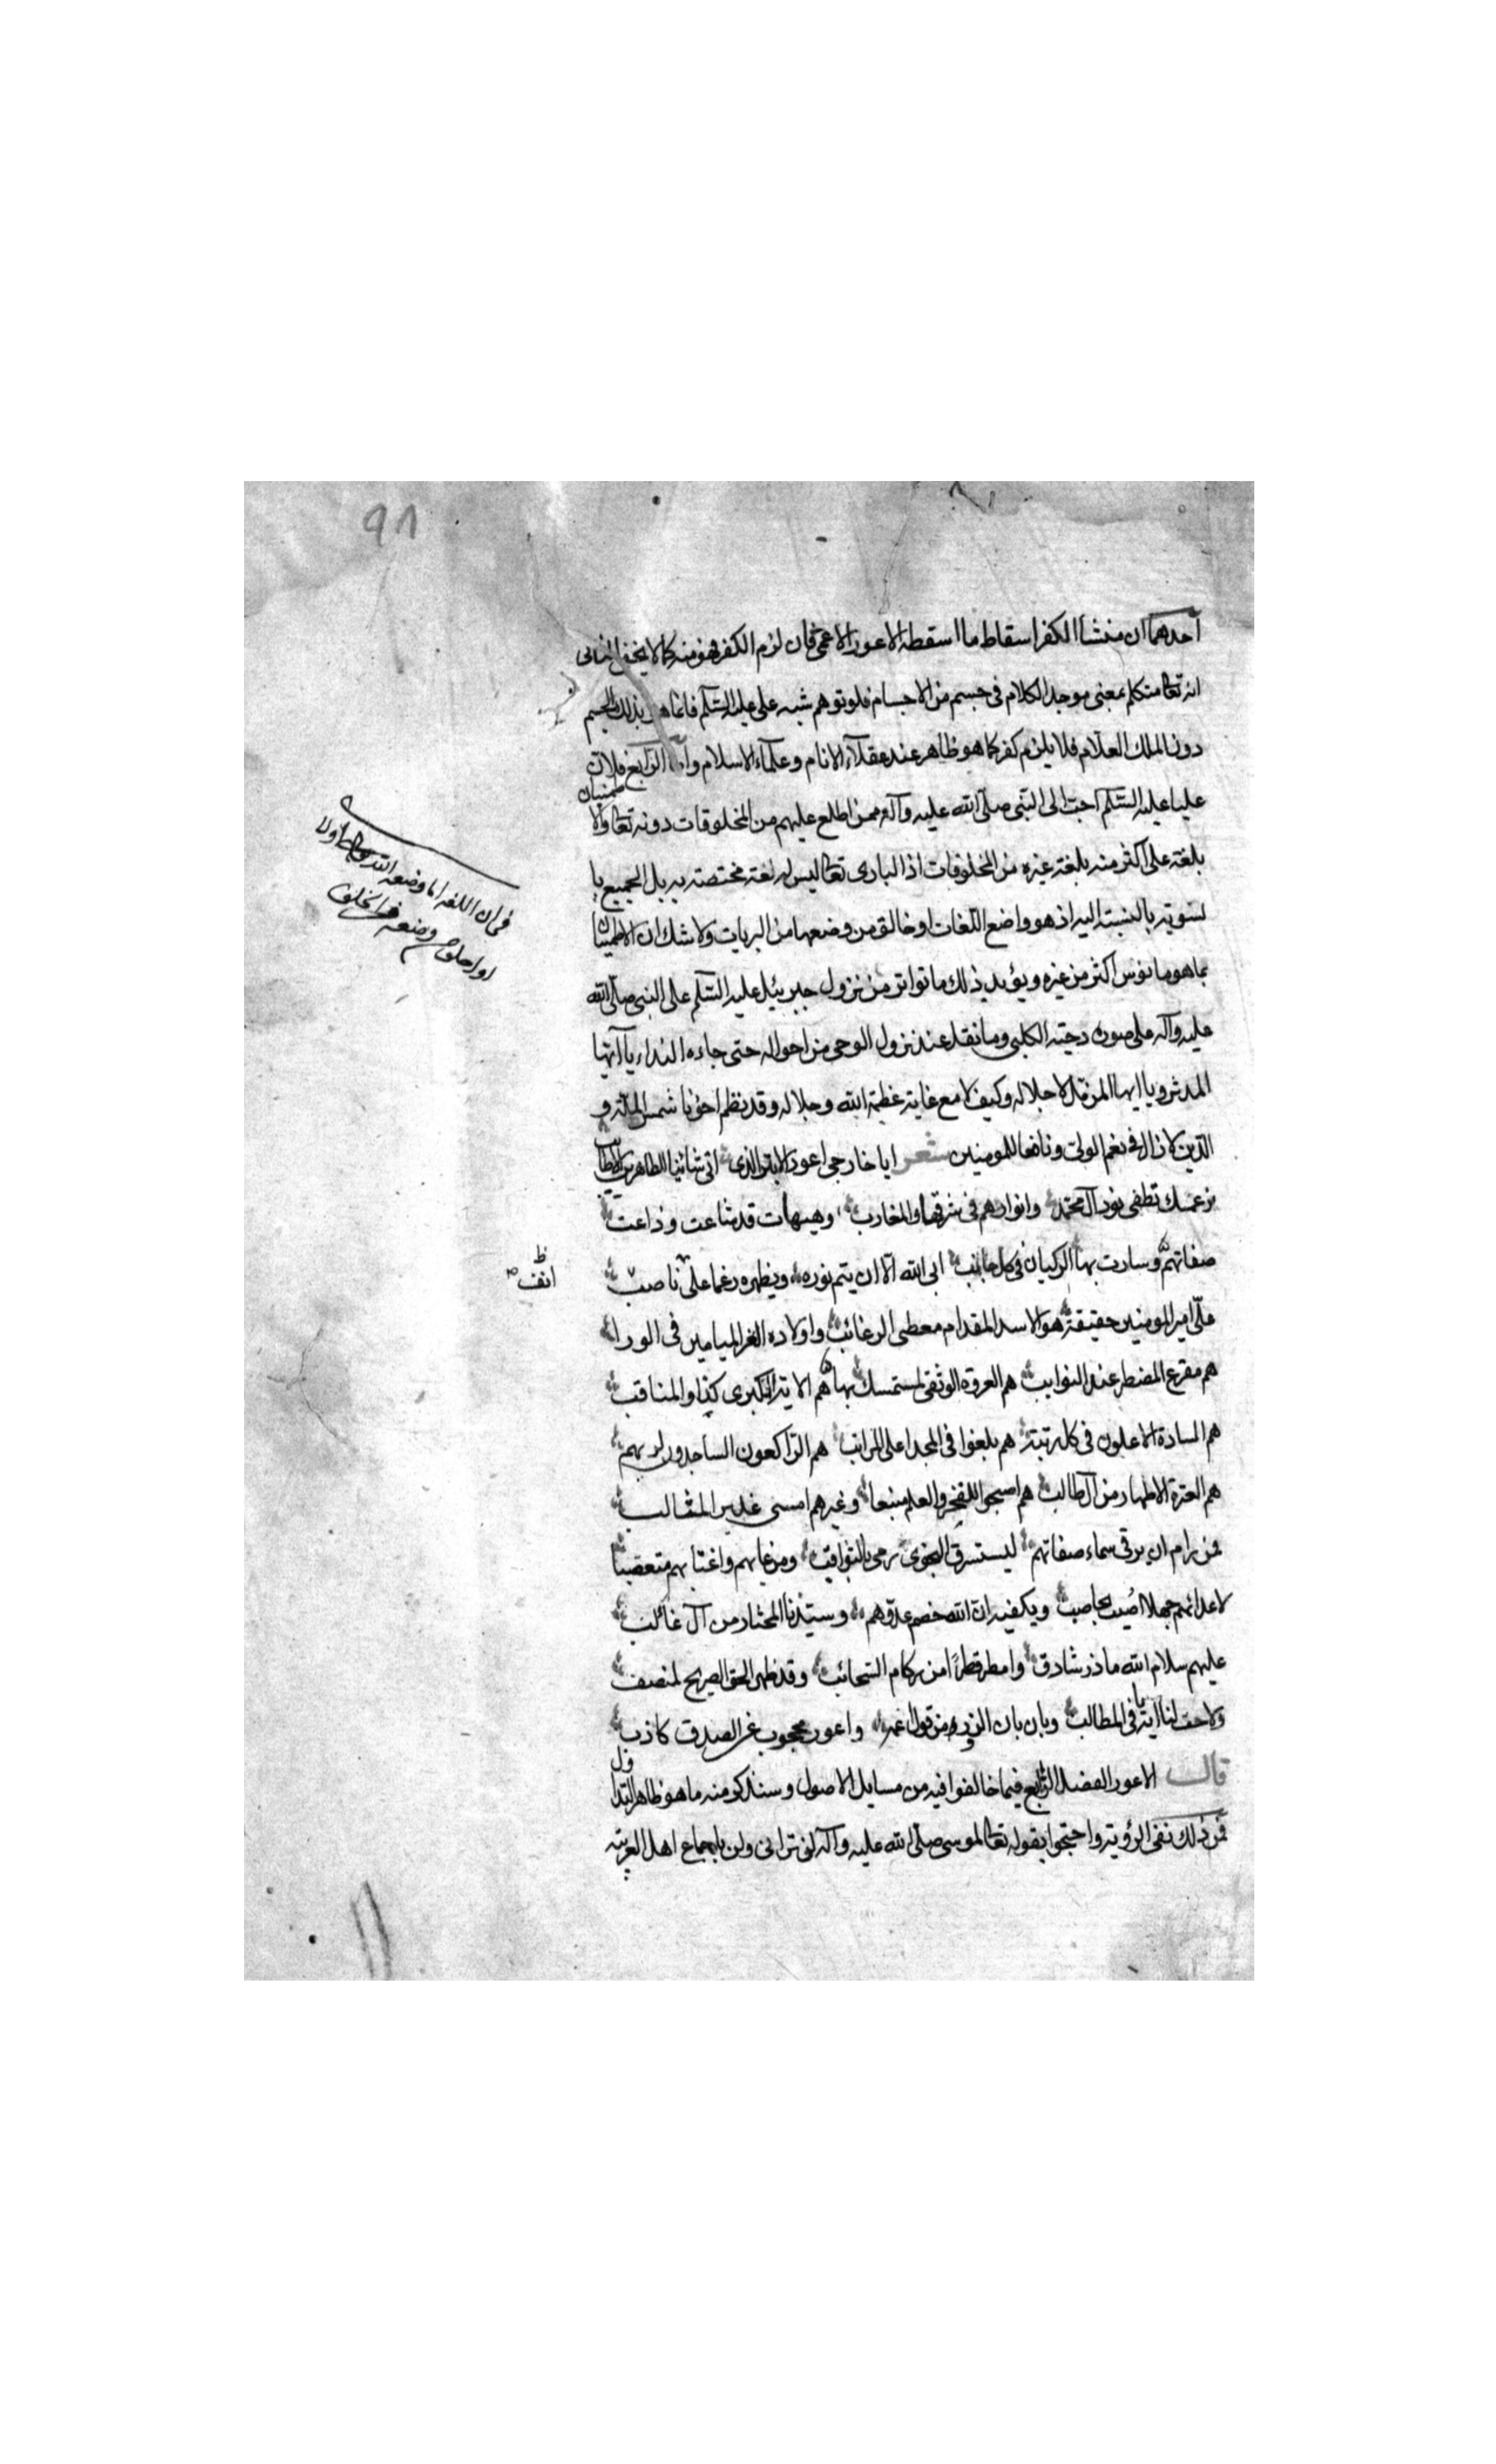 ٩٨
أحدهما ان منشأ الكفر اسقاط ما اسقطه الاعور الاعمى فان لزم الكفر فهو منه كما لا يخفى الثاني
انه تعالى متكلم بمعنى موجد الكلام في جسم من الاجسام فلو توهم شبه علي عليه السلم فانما هو بذلك الجسم
دون الملك العلام فلا يلزم كفر كما هو ظاهر عند عقلاء الانام وعلماء الاسلام وأما الرابع فلان
عليا عليه السلم احب الى النبي صلى الله عليه وآله ممن اطلع عليهم من المخلوقات دونه تعالى والاطمينان
بلغة علي اكثر منه بلغة غيره من المخلوقات اذ الباري تعالى ليس له لغة مختصة به بل الجميع با
لسوية بالنسبة اليه اذ هو واضع اللغات او خالق من وضعها من البريات ولا شك ان الاطمينان
بما هو مانوس اكثر من غيره ويؤيد ذلك ما تواتر من نزول جبرئيل عليه السلم على النبي صلى الله
عليه وآله على صورة دحية الكلبي وما نقل عند نزول الوحي من احواله حتى جاءه النداء يا أيها
المدثر ويا ايها المزمل لاجلاله وكيف لا مع غاية عظمة الله وجلاله وقد نظم اخونا شمس الملة و
الدين لا زال في نعم المولى ونافعا للمومنين شعر ايا خارجي اعور الابتر الذي اتى شانئا للطاهرين الاطائب
بزعمك تطفى نور آل محمد وانوارهم في شرقها والمغارب وهيهات قد شاعت وذاعت
صفاتهم وسارت بها الركبان في كل جانب ابى الله الا ان يتم نوره ويظهره رغما على ناصب
علي امير المومنين حقيقة هو الاسد المقدام معطي الرغائب واولاده الغر الميامين في الورا
هم مفزع المضطر عند النوايب هم العروة الوثقى لمستمسك بها هم الاية الكبرى كذا والمناقب
هم السادة الاعلون في كل رتبة هم بلغوا في المجد اعلى المراتب هم الراكعون الساجدون لربهم
هم العترة الاطهار من آل طالب هم اصبحوا للفخر والعلم منبعا وغيرهم امسى غدير المثالب
فمن رام ان يرقى سماء صفاتهم ليسترق النجوى رمي بالثواقب ومن عابهم واغتابهم متعصبا
لاعدائهم جهلا اصيب بحاصب ويكفيه ان الله خصم عدوهم وسيدنا المختار من آل غالب
عليهم سلام الله ما ذر شارق وامطر قطرا من ركام السحائب وقد ظهر الحق الصريح لمنصف
ولاحت لنا اياته في المطالب وبان بان الزور من قول اعور محجوب عن الصدق كاذب
قال الاعور الفصل الرابع فيما خالفوا فيه من مسايل الاصول وسنذكر منه ما هو ظاهر التداول
فمن ذلك نفي الرؤية واحتجوا بقوله تعالى لموسى صلى الله عليه وآله لن تراني ولن باجماع اهل العربية
في ان اللغه اما وضعه الله تعالى اولا
وضعه الخلق
ظ
انف